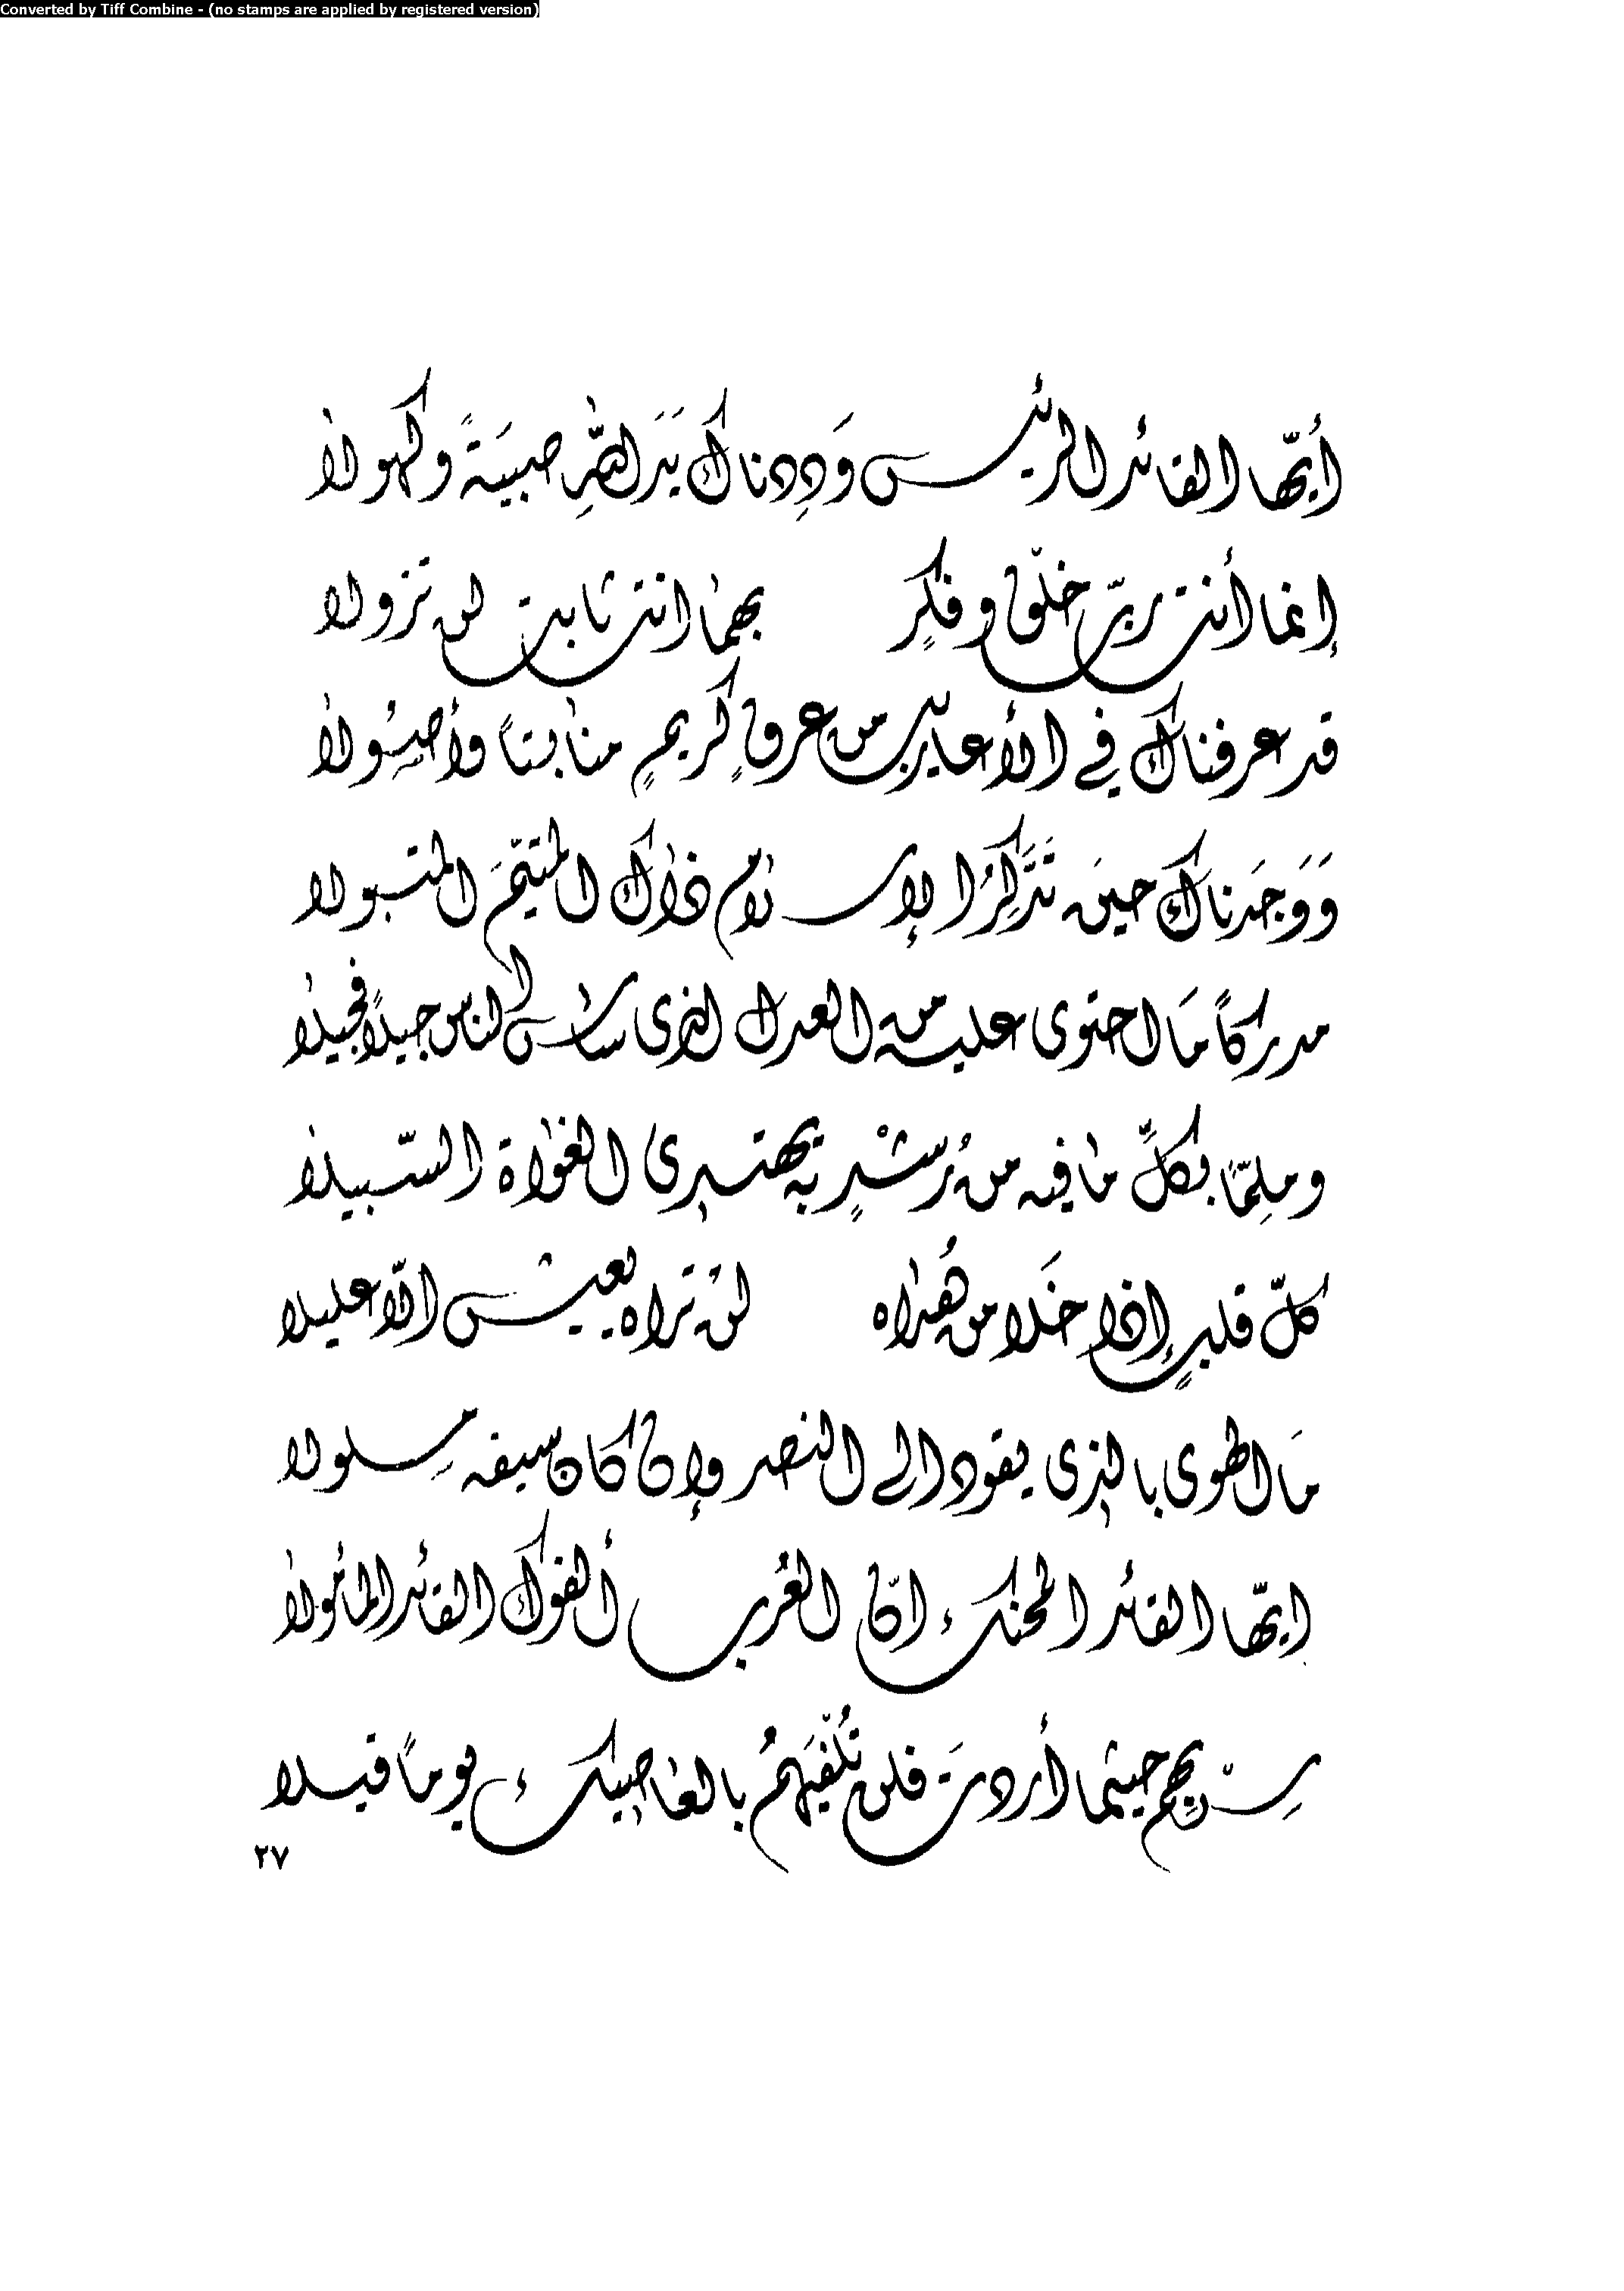 Converted by Tiff Combine - (no stamps are applied by registered version)
أيّها القائد الرئيس وَدِدناك يَدَ النصرِ صبيَةً وكهولا
إنما أنت ربّ خلق وفكرٍ بهما انت ثابت لن تزولا
قد عرفناك في الأعاريب من عرقٍ كريمٍ منابتاً وأصُولا
وَوَجَدناك حينَ تَدَّكِرُ الإسلام ذاك المتيّمَ المتبولا
مدركاً مَا احتوى عليه من العدل الذي ساس الناس جيلاً فجيلا
وملِمّاً بكلِّ ما فيه من رُشْدٍ به يهتدي الغواة السّبيلا
كلّ قلبٍ إذا خَلا من هُداه لن تراه يعيش الاّ عليلا
مَا الهوى بالذي يقود الى النصر وإن كان سيفه مسلولا
ايّها القائد المحنك انّ العُرب ألفوك القائد المأمولا
سِرْ بهم حيثما أردتَ فلن تُلفيَهمُ بالغاصبيك يوماً قيلا
٢٧